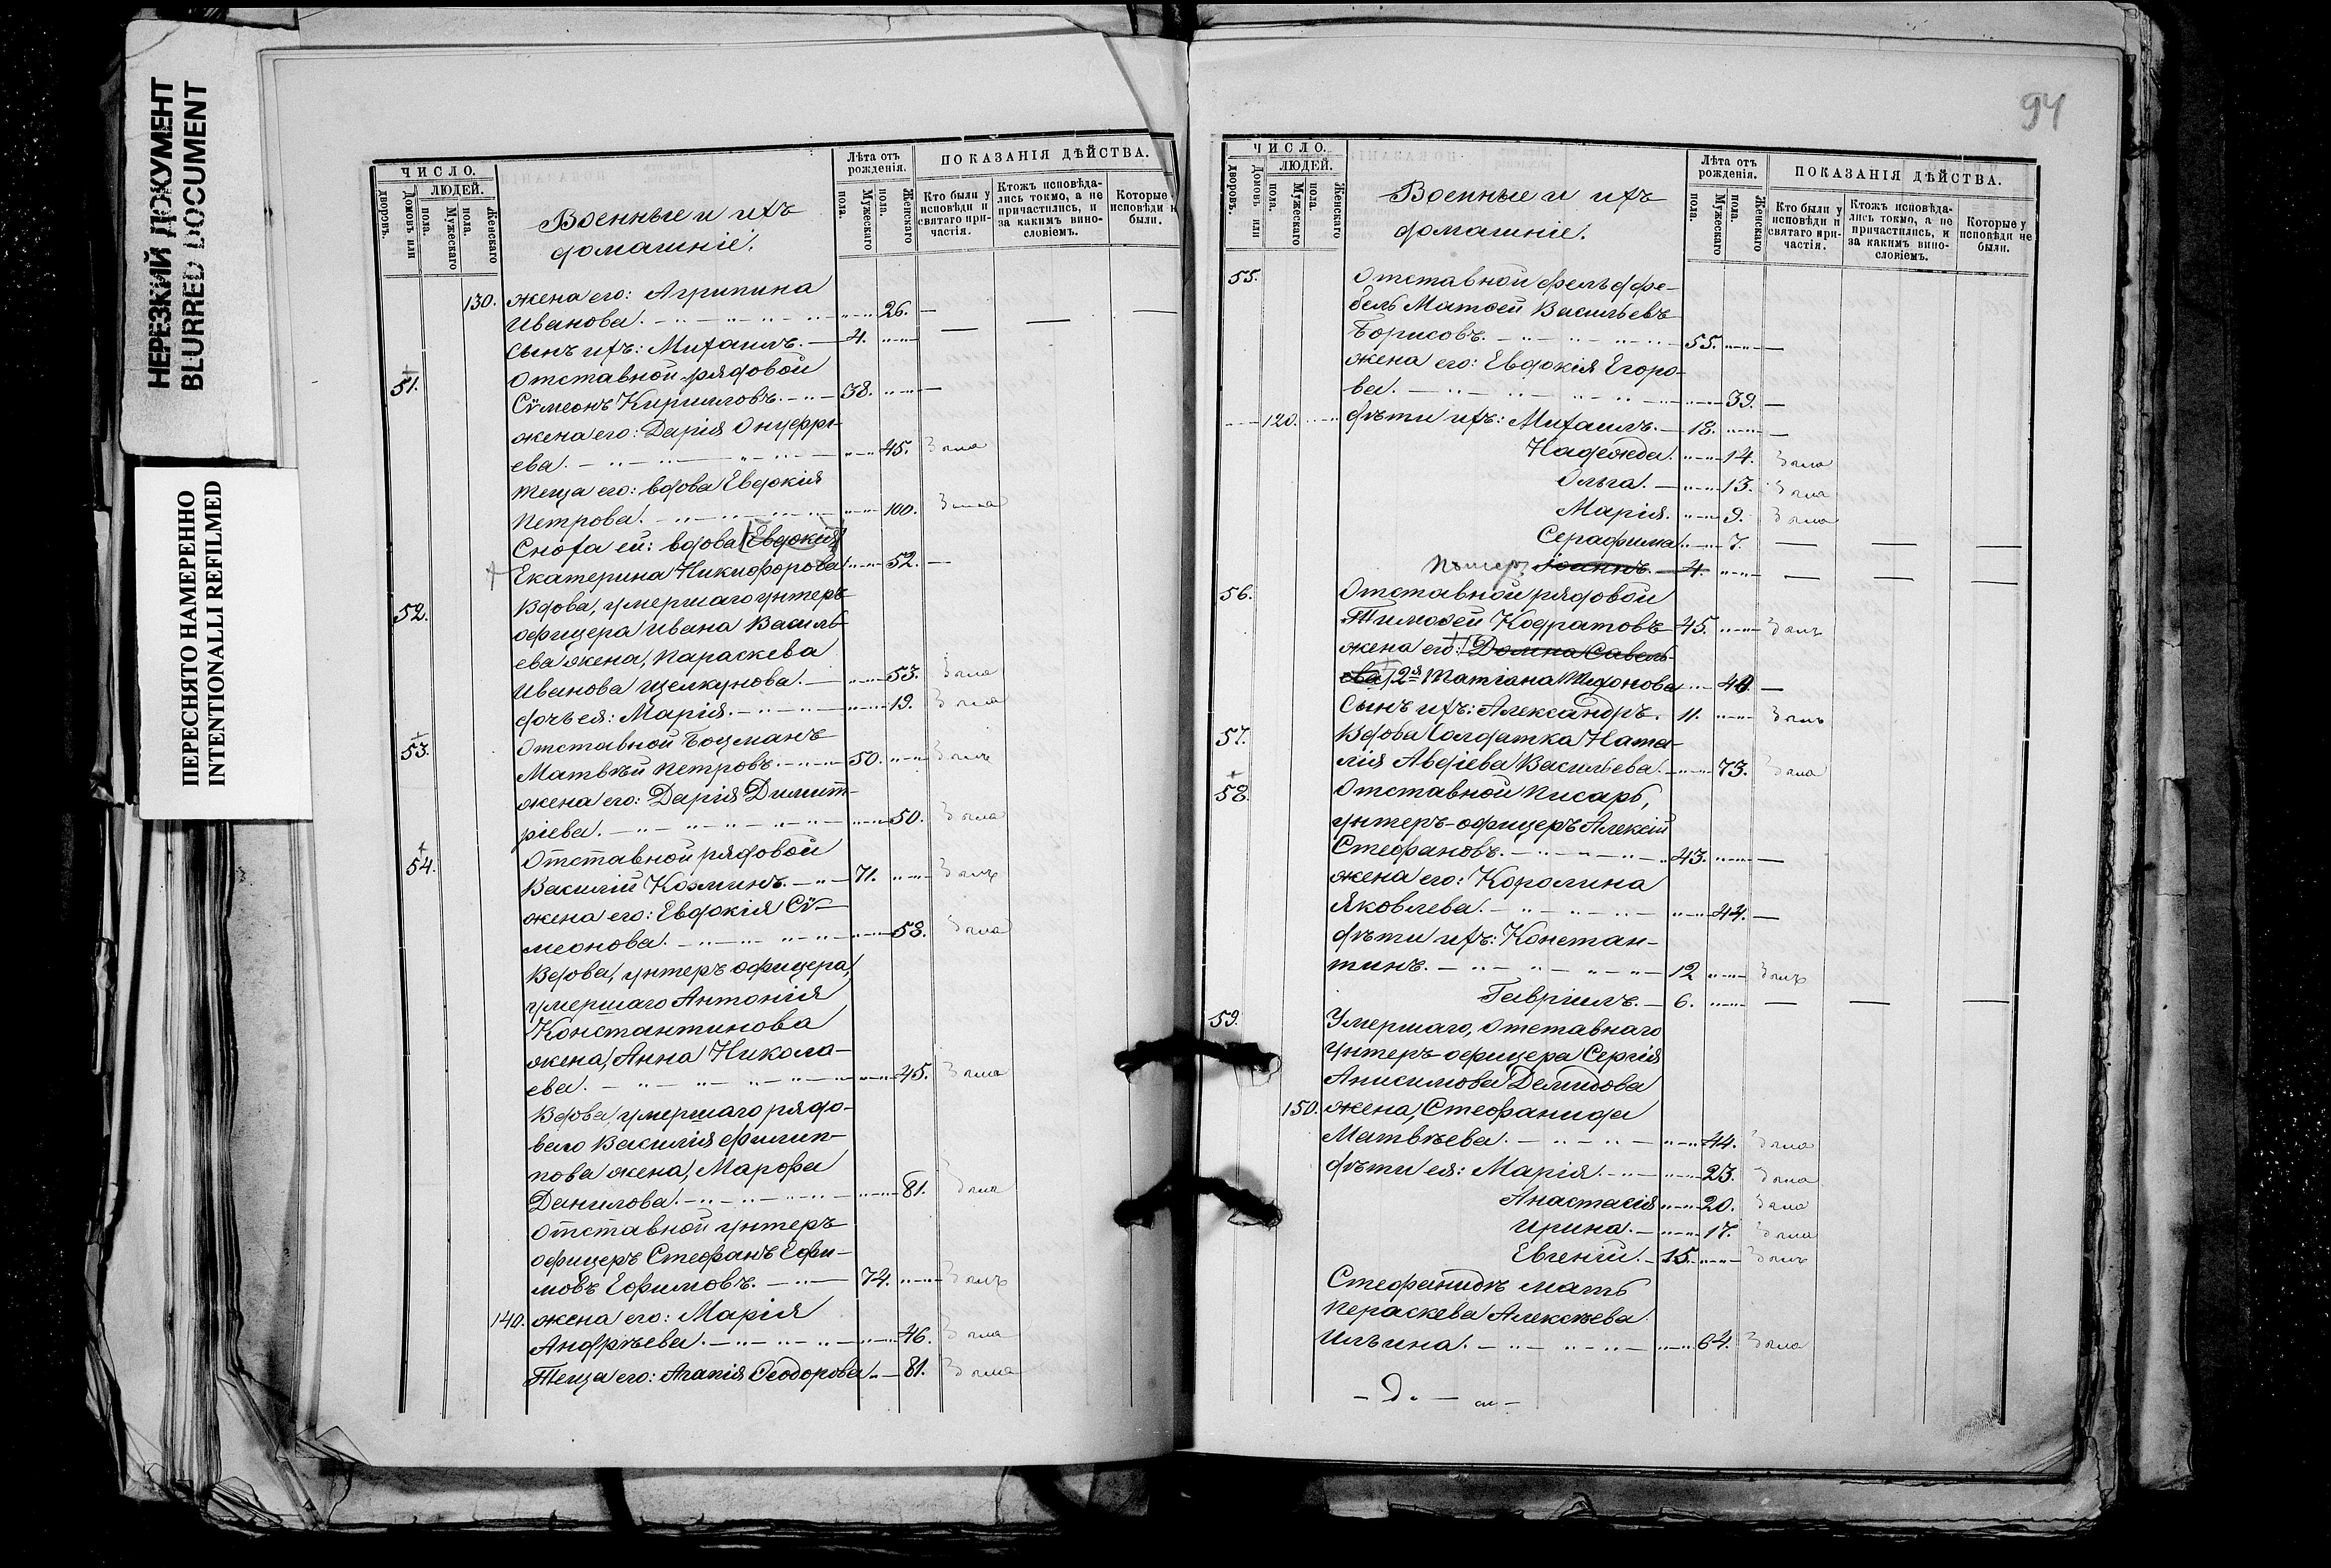 НЕРЕЗКИЙ ДОКУМЕНТ
BLURRED DOCUMENT
ПЕРЕСНЯТО НАМЕРЕННО
INTENTIONALLI REFILMED
ЧИСЛО.
ЛЮДЕЙ.
Домовъ или дворовъ.
Мужескаго пола.
Женскаго пола.
Военные и ихъ
домашніе.
Лѣта отъ рожденія.
Мужескаго пола.
Женскаго пола.
ПОКАЗАНІЯ ДѢЙСТВА.
Кто были у исповѣди и святаго причастія.
Ктожъ исповѣдались токмо, а не причастились, и за какимъ винословіемъ.
Которые исповѣди н были.
130. жена его: Агрипина
Иванова. 26. —
сынъ ихъ: Михаилъ. — 4. — — —
51. Отставной рядовой
Сѵмеонъ Кирилловъ. 38. —
жена его: Дарія Онуфрі-
ева. 45. была
теща его: вдова Евдокія
Петрова. 100. была
Сноха ей: вдова Евдокія
Екатерина Никифорова 52. —
52. Вдова, умершаго унтеръ-
офицера Ивана Василь-
ева жена, Параскева
Иванова Щелкунова. 53. была
дочь ея: Марія. 19. была
53. Отставной Боцманъ
Матвѣй Петровъ. 50. былъ
жена его: Дарія Димит-
ріева. 50. была
54. Отставной рядовой
Василій Козминъ. 71. былъ
жена его: Евдокія Сѵ-
меонова. 58. была
Вдова, унтеръ офицера,
умершаго Антонія
Константинова
жена, Анна Никола-
ева. 45. была
Вдова, умершаго рядо-
ваго Василія Филип-
пова жена, Марфа
Данилова. 81. была
Отставной унтеръ
офицеръ Стефанъ Ефи-
мовъ Ефимовъ. 74. былъ
140. жена его: Марія
Андрѣева. 46. была
Теща его: Агапія Ѳеодорова 81. была
94
ЧИСЛО.
ЛЮДЕЙ.
Домовъ или дворовъ.
Мужескаго пола.
Женскаго пола.
Военные и ихъ
домашніе.
Лѣта отъ рожденія.
Мужескаго пола.
Женскаго пола.
ПОКАЗАНІЯ ДѢЙСТВА.
Кто были у исповѣди и святаго причастія.
Ктожъ исповѣдались токмо, а не причастились, и за какимъ винословіемъ.
Которые у исповѣди не были.
55. Отставной фельдфе-
бель Матѳей Васильевъ
Борисовъ. 55. —
жена его: Евдокія Егоро-
ва. 39. —
120. дѣти ихъ: Михаилъ. 18. —
Надежда. 14. была
Ольга. 13. была
Марія. 9. была
Серафима. 7. — — —
Іоаннъ. 4. — — —
56. Отставной рядовой
Тимоѳей Кодратовъ 45. былъ
жена его: Домна Савель-
ева 2я Татіана Тихонова 40. —
Сынъ ихъ: Александръ. 11. былъ
57. Вдова Солдатка Ната-
лія Авдіева Васильева. 73. была
58. Отставной Писарь,
унтеръ-офицеръ Алексій
Стефановъ. 43. —
жена его: Королина
Яковлева. 44. —
дѣти ихъ: Констан-
тинъ. 12 былъ
Гавріилъ. 6. — — —
59. Умершаго, отставнаго
унтеръ-офицера Сергія
Анисимова Демидова
150. жена, Стефанида
Матвѣева. 44. была
дѣти ея: Марія. 23. была
Анастасія 20. была
Ирина. 17. была
Евгеній. 15. былъ
Стефанидѣ мать
Пераскева Алексѣева
Ильина. 64. была